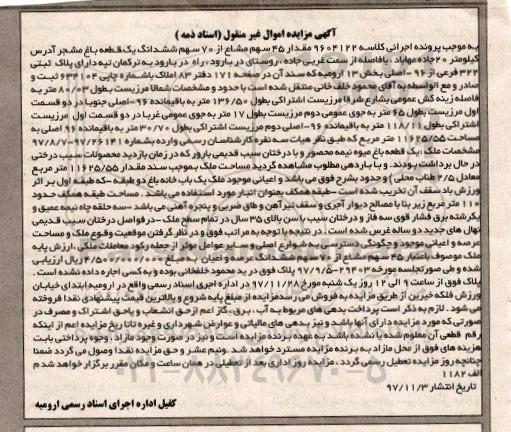 آگهی مزایده اموال غیر منقول (اسناد ذمه)
به موجب پرونده اجرائی کلاسه ۹۶۰۴۱۲۲ مقدار ۴۵ سهم مشاع از ۷۰ سهم ششدانگ یک قطعه باغ مشجر آدرس
کیلومتر ۲۰ جاده مهاباد ، بافاصله از سمت غربی جاده ، روستای در بارود ، راه در بارود به ترکمان تپه دارای پلاک ثبتی
۳۲۲ فرعی از ۹۶ - اصلی بخش ۱۳ ارومیه که سند آن در صفحه ۱۷۱ دفتر ۸۳ املاک باشماره چاپی ۶۳۴۱۰۴ ثبت و
صادر و مع الواسطه به آقای محمود خلف خانی منتقل شده است با حدود و مشخصات شمالا مرزیست بطول ۸۰/۰۳ متر به
فاصله زینه کش عمومی بشارع شرقا مرزیست اشتراکی بطول ۱۳۶/۵۰ متر به باقیمانده ۹۶-اصلی جنوبا در دو قسمت
اول مرزیست بطول ۶۵ متر به جوی عمومی دوم مرزیست بطول ۱۷ متر به جوی عمومی غربا در دو قسمت اول مرزیست
اشتراکی بطول ۱۱۸/۱۱ متر به باقیمانده ۹۶-اصلی دوم مرزیست اشتراکی بطول ۳۰/۷۰ متر به باقیمانده ۹۶ اصلی به
مساحت ۱۱۶۲۵/۵۵ متر مربع که طبق نظر هیات سه نفره کارشناسان رسمی وارده بشماره ۹۷/۲۶۱۴۱-۹۷/۸/۷
مشخصات ملک :یک قطعه باغ میوه نیمه محصور و با درختان سیب قدیمی بارور که در زمان بازدید محصولات سیب درختی
در حال برداشت بودند. و با بازدهی مطلوب مشاهده گردید مساحت ملک بموجب سند مقدار ۱۱۶۲۵/۵۵ متر مربع
معادل ۲/۵ طناب محلی) و حدود بشرح فوق می باشد و اعیانی موجود ملک یک باب خانه باغ دو طبقه -که طبقه اول بر اثر
ورزش باد سقف آن تخریب شده است -طبقه همکف بعنوان انبار مورد استفاده می باشد . مساحت طبقه همکف حدود
۱۱۰ متر مربع زیر بنا با مصالح دیوار آجری و سقف تیرآهن و طاق ضربی و پنجره آهنی می باشد -سه حلقه چاه نیمه عمیق و
یکرشته برق فشار قوی سه فاز و درختان سیب با سن بالای ۳۵ سال در تمام سطح ملک -در فواصل درختان سیب قدیمی
نهال های جدید دو ساله غرس شده است . در نتیجه با توجه به مراتب فوق و در نظر گرفتن موقعیت وقوع ملک و مساحت
عرصه و اعیانی موجود و چگونگی دسترسی به شوارع اصلی و سایر عوامل موثر از جمله رکود معاملات ملکی ، ارزش پایه
ملک موصوف باعتبار ۴۵ سهم مشاع از ۷۰ سهم ششدانگ عرصه و اعیان به مبلغ ۴/۵۰۰/۰۰۰/۰۰۰ ریال ارزیابی
شده و طی صورتجلسه مورخه ۲۹۴۰۳-۹۷/۹/۵ پلاک فوق در ید محمود خلفخانی بوده و به کسی اجاره داده نشده است .
پلاک فوق از ساعت ۹ الی ۱۲ روز یک شنبه مورخ ۹۷/۱۱/۲۸ در اداره اجرای اسناد رسمی واقع در ارومیه ابتدای خیابان
ورزش فلکه خیزین از طریق مزایده به فروش می رسد مزایده از مبلغ پایه شروع و بالاترین قیمت پیشنهادی نقدا فروخته
می شود . لازم به ذکر است پرداخت بدهی های مربوط به آب ، برق ، گاز اعم از حق انشعاب و یا حق اشتراک و مصرف در
صورتی که مورد مزایده دارای آنها باشد و نیز بدهی های مالیاتی و عوارض شهرداری و غیره تا تاریخ مزایده اعم از اینکه
رقم قطعی آن معلوم شده یا نشده باشد به عهده برنده مزایده است و نیز در صورت وجود مازاد ، وجوه پرداختی بابت
هزینه های فوق از محل مازاد به برنده مزایده مسترد خواهد شد .ونیم عشر و حق مزایده نقدا وصول می گردد ضمنا
چنانچه روز مزایده تعطیل رسمی گردد ، مزایده روز اداری بعد از تعطیلی در همان ساعت و مکان مقرر برگزار خواهد شد م
الف ۱۱۸۲
تاریخ انتشار ۹۷/۱۱/۳
کفیل اداره اجرای اسناد رسمی ارومیه